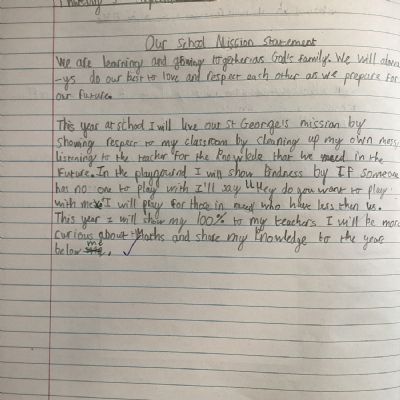 Our School Mission Statement
We are learning and growing together as God's family. We will alwa
-ys do our best to love and respect each other as we prepare for
our future.
This year at school I will live our St George's mission by
showing respect to my classroom by cleaning up my own mess
listening to the teacher for the knowlede that we need in the
Future. In the playground I will show kindness by If someone
has no one to play with I'll say "Hey do you want to play
with me". I will pray for those in need who have less then us.
This year I will show my 100% to my teachers I will be more
curious about Maths and share my knowledge to the year
below me.